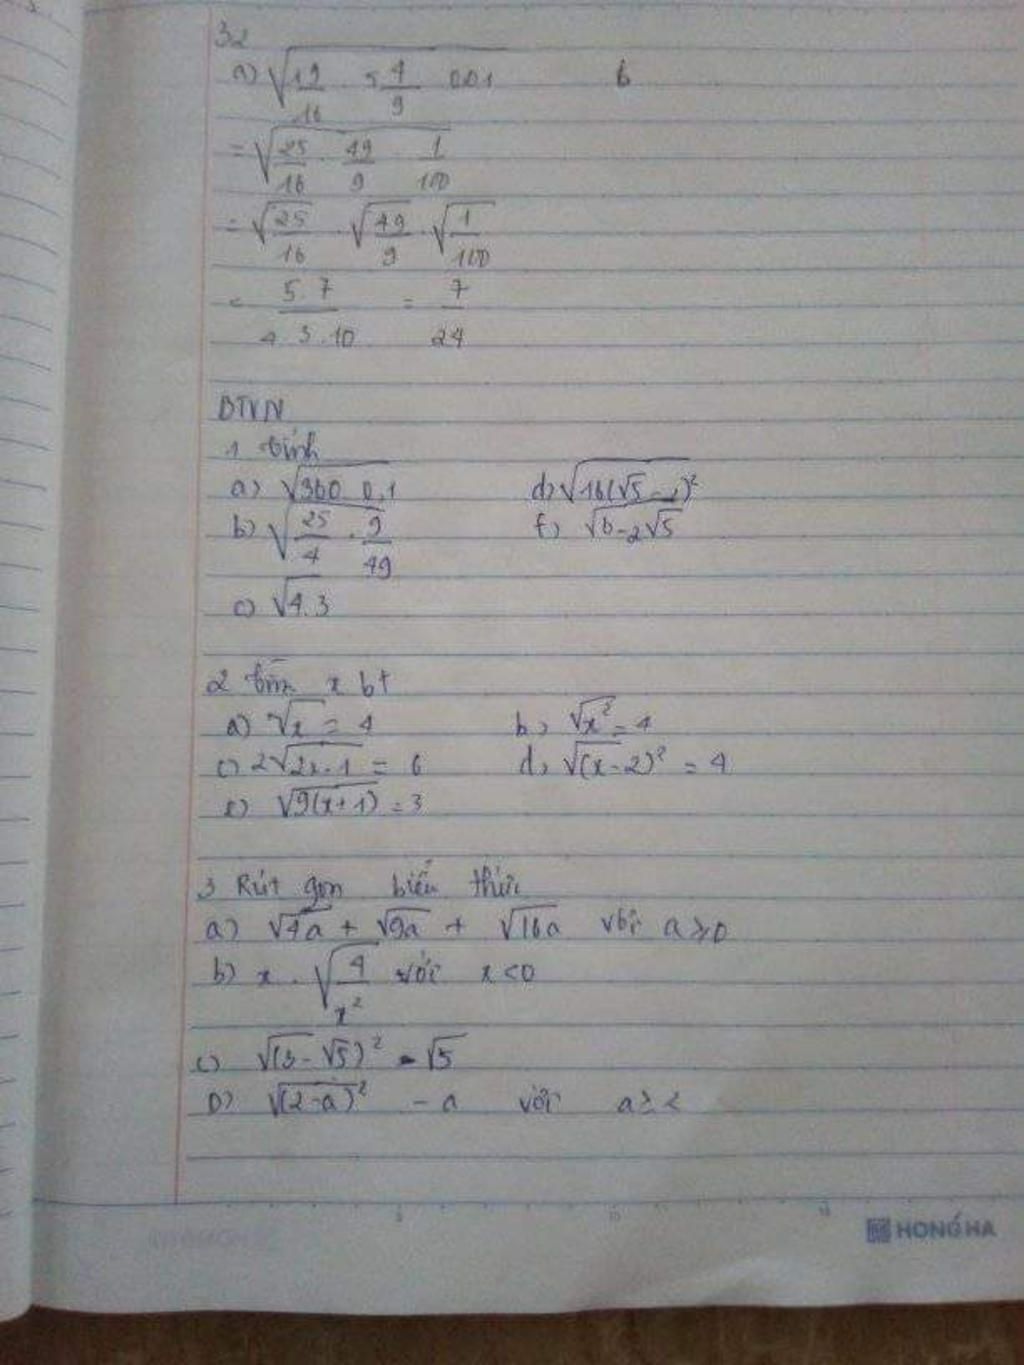 32
a) √(1 9/16 . 5 4/9 . 0,01) b
= √(25/16 . 49/9 . 1/100)
= √(25/16) . √(49/9) . √(1/100)
= (5.7)/(4.3.10) = 7/24
BTVN
1 tính
a) √(360 0,1) d) √(16(√5 - 1)²)
b) √(25/4 . 9/49) f) √(6-2√5)
c) √(4.3)
2 tìm x bt
a) √x = 4 b, √x² = 4
c) 2√(2x-1) = 6 d, √(x-2)² = 4
e) √(9(x+1)) = 3
3 Rút gọn biểu thức
a) √4a + √9a + √16a với a ≥ 0
b) x . √(4/x²) với x < 0
c) √(3-√5)² - √5
D) √(2-a)² - a với a ≥
HONG HA